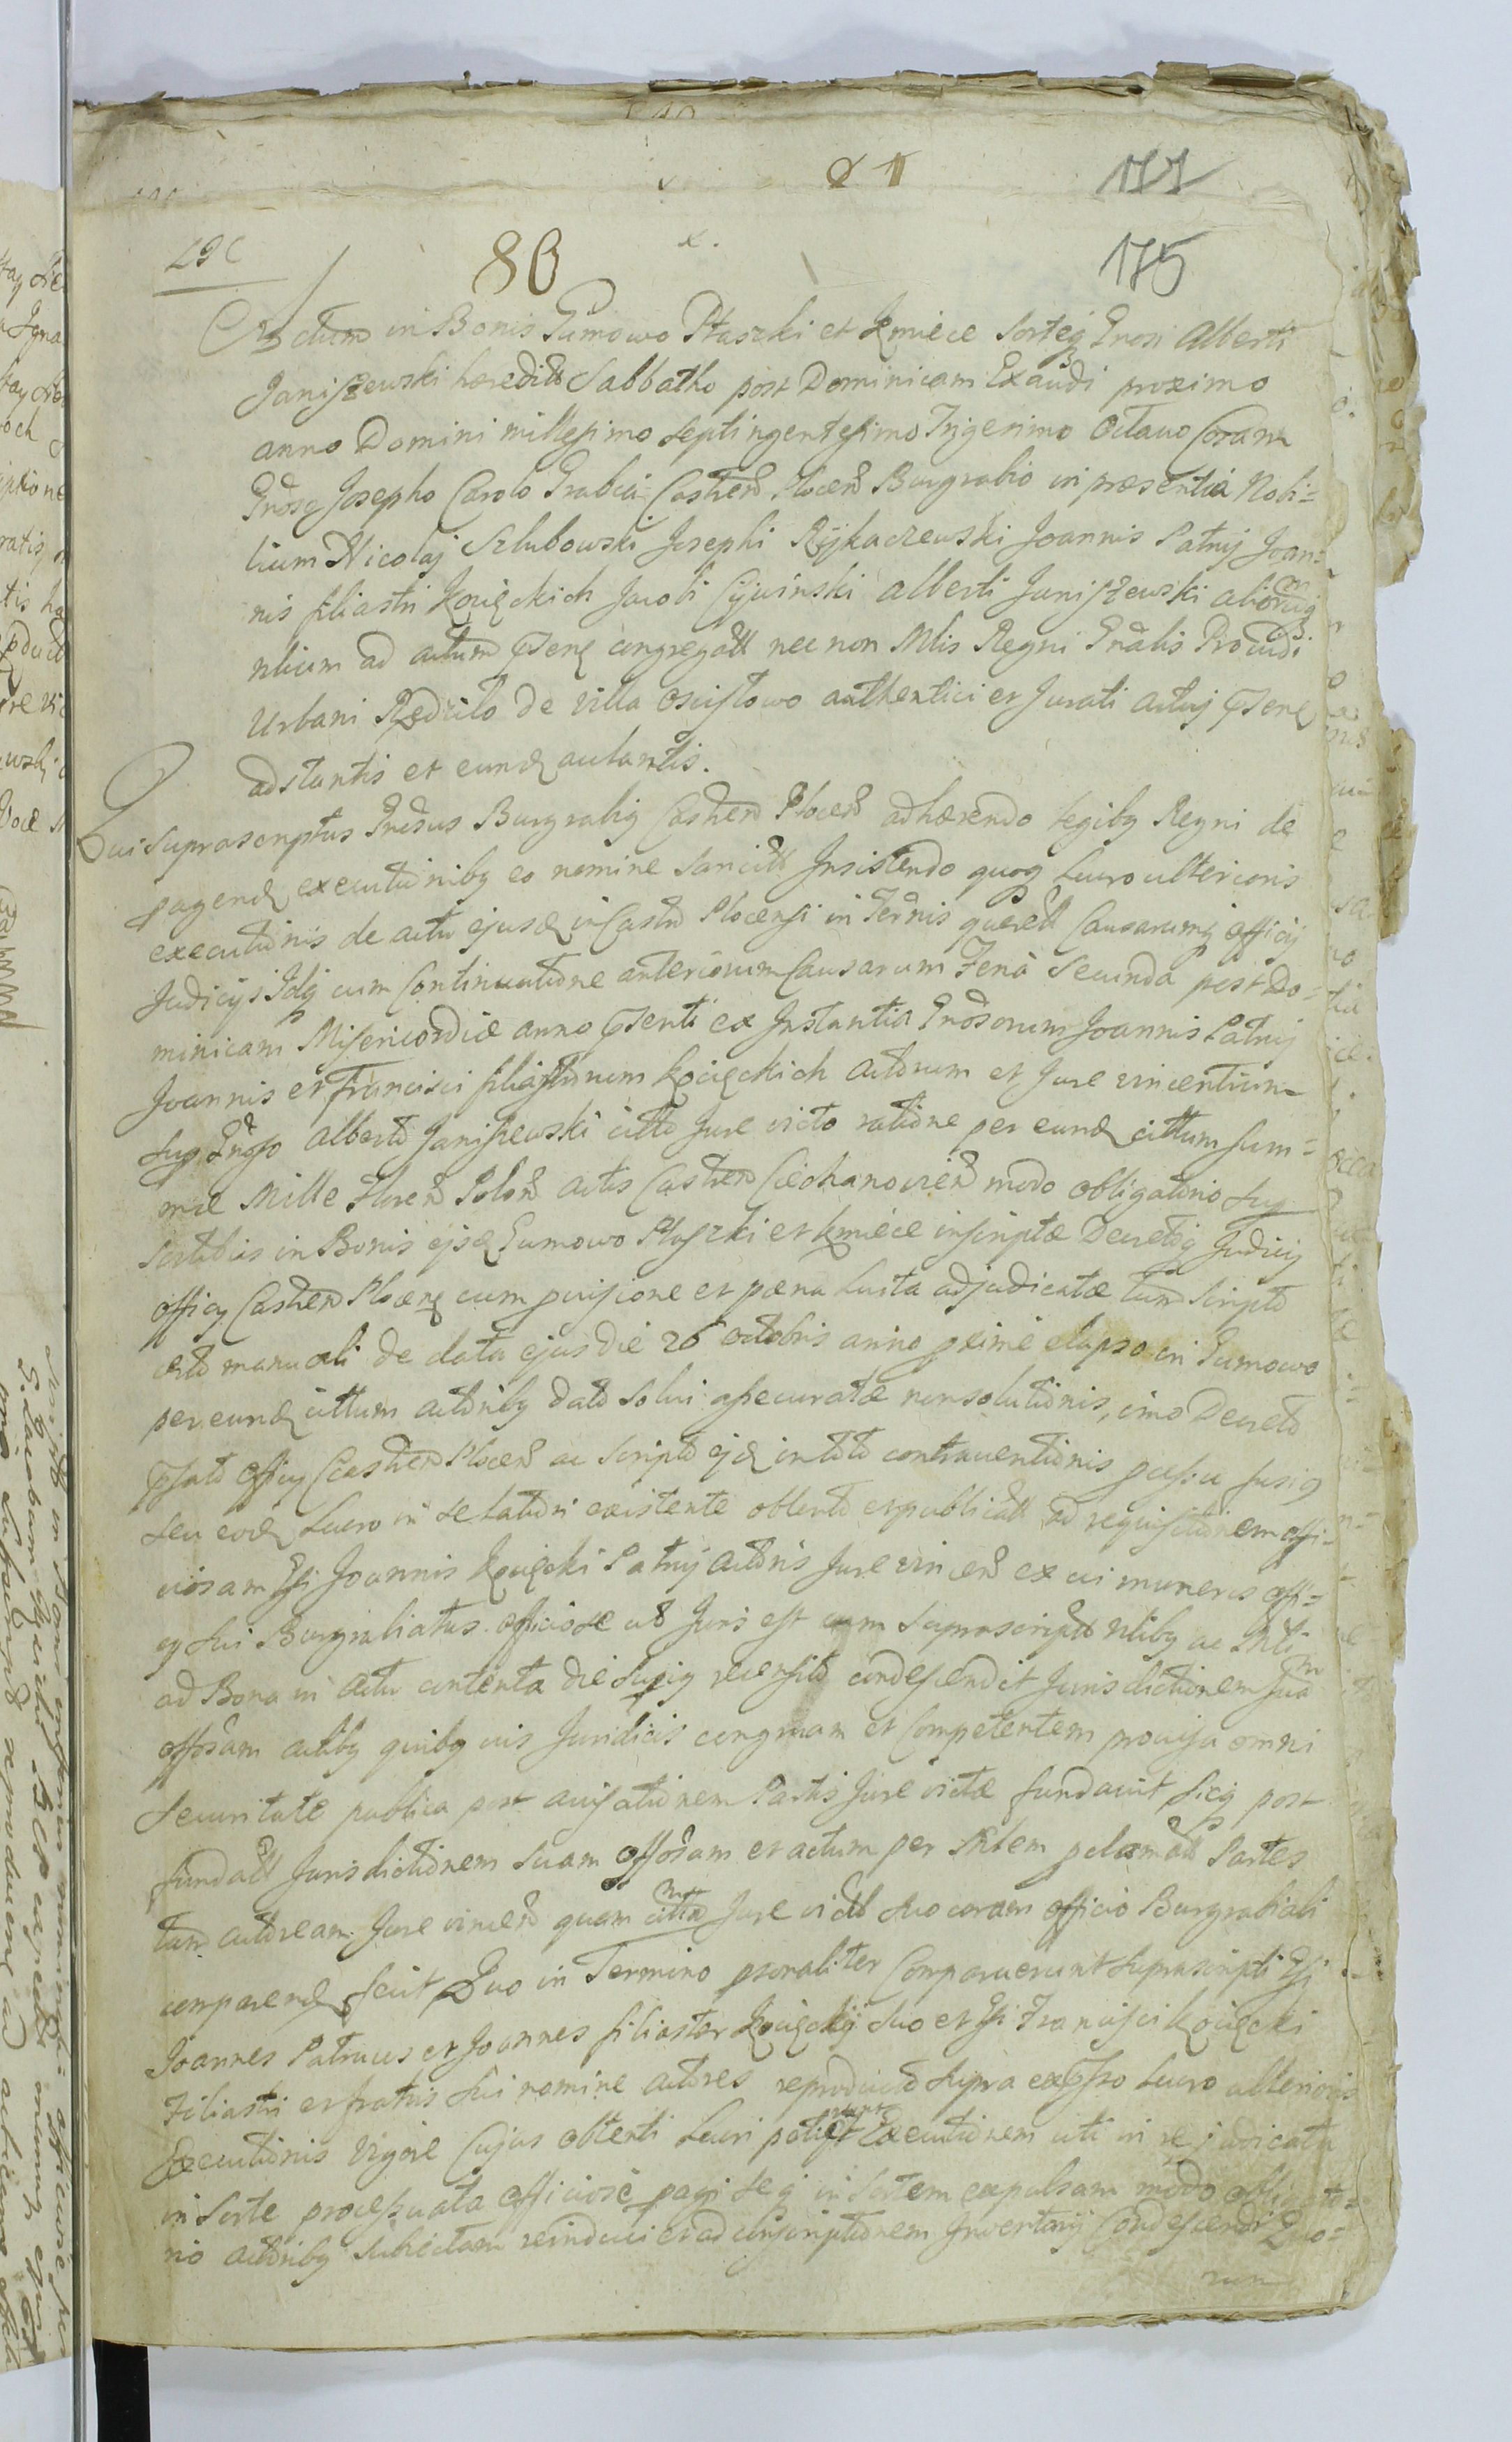 177
80
175
Actum in Bonis Gumowo Ptaszki et Kmiece Sorteq Grosi Alberti
Janiszewski haeredit Sabbatho post Dominicam Exaudi proximo
anno Domini millesimo Septingentesimo Trigesimo Octavo Coram
Gnoso Josepho Carolo Grabia Castren Plocen Burgrabio in praesentia Nobi=
lium Nicolaj Szlubowski Josephi Rijkaczewski Joannis Patruj Joan=
nis filiastri Kocięckich Jacobi Cijwinski Alberti Janiszewski aliorumq
nlium ad actum psen congregatt nec non Mlis Regni Gnalis Providi
Urbani Rędziło de villa Oscisłowo authentici et Jurati actuj psen
adstantis et eund actantis.
Qui Suprascriptus Gnosus Burgrabiq Castren Plocen adhaerendo legibq Regni de
pagend executionibq eo nomine Sancitt Insistendo quoq Lucro ulterioris
executionis de actu ejusd in Castro Plocensi in Terminis querell Causarumq officij
Judicijs Idq cum Continuatione anteriorum Causarum Feria Secunda post Do=
minicam Misericordiae anno psenti ex Instantia Gnosorum Joannis Patruj
Joannis et Francisci filiastrorum Kocięckich Actorum et Jure vincentium
Sup Gnoso Alberto Janiszewski citto Jure victo ratione per eund cittum Sum=
mae Mille Floren Polon actis Castren Ciechanovien modo obligatorio Sup
Sortibus in Bonis ejsd Gumowo Ptaszki et Kmiece inscriptae Decretoq Judicij
officij Castren Plocen cum provisione et paena Lucta adjudicatae tum Scripto
certo manuali de data ejus die 26 octobris anno proxime elapso in Gumowo
per eund cittum actoribq dato Solvi assecuratae nonsolutionis, imo Decreto
psato officij Castren Plocen ac Scripto ejd in toto contraventionis
Seu eod Lucro in se latiori existente obtento et publicatt ad requisitionem offi=
ciosam Gsi Joannis Kocięcki Patruj actoris Jure vincen ex vi muneris offi=
cij Sui Burgrabiatus officiose uti Juris est cum Suprascriptt nlibq ac Mlti
ad Bona in actu contenta die Supiq recensito condescendit Jurisdictionem Sua
offosam actibq quibq vis Juridicis congruam et Competentem provisa omni
Securitate publica post avisationem Partis Jure victae fundavit Sicq post
fundatt Jurisdictionem Suam offosam et actum per Mltem pclamatt Partes
tam actoream Jure vincen quam citta Jure victt Suo coram officio Burgrabiali
comparend fecit Quo in Termino psonaliter Comparuerunt Suprascripti Gsi
Joannes Patruus et Joannes filiaster Kocięckij Suo et Gsi Francisci Kocięcki
Filiastri et fratris Sui nomine actores reproducto Supra expsso Lucro ulterioris
Executionis vigore Cujus obtenti Lucri Executionem uti in re judicata
in Sorte processuata officiose pagi Seq in Sortem expulsam modo obligato=
rio actoribq subiectam reinduci et ad conscriptionem Inventarij Condescendi Quo=
rum